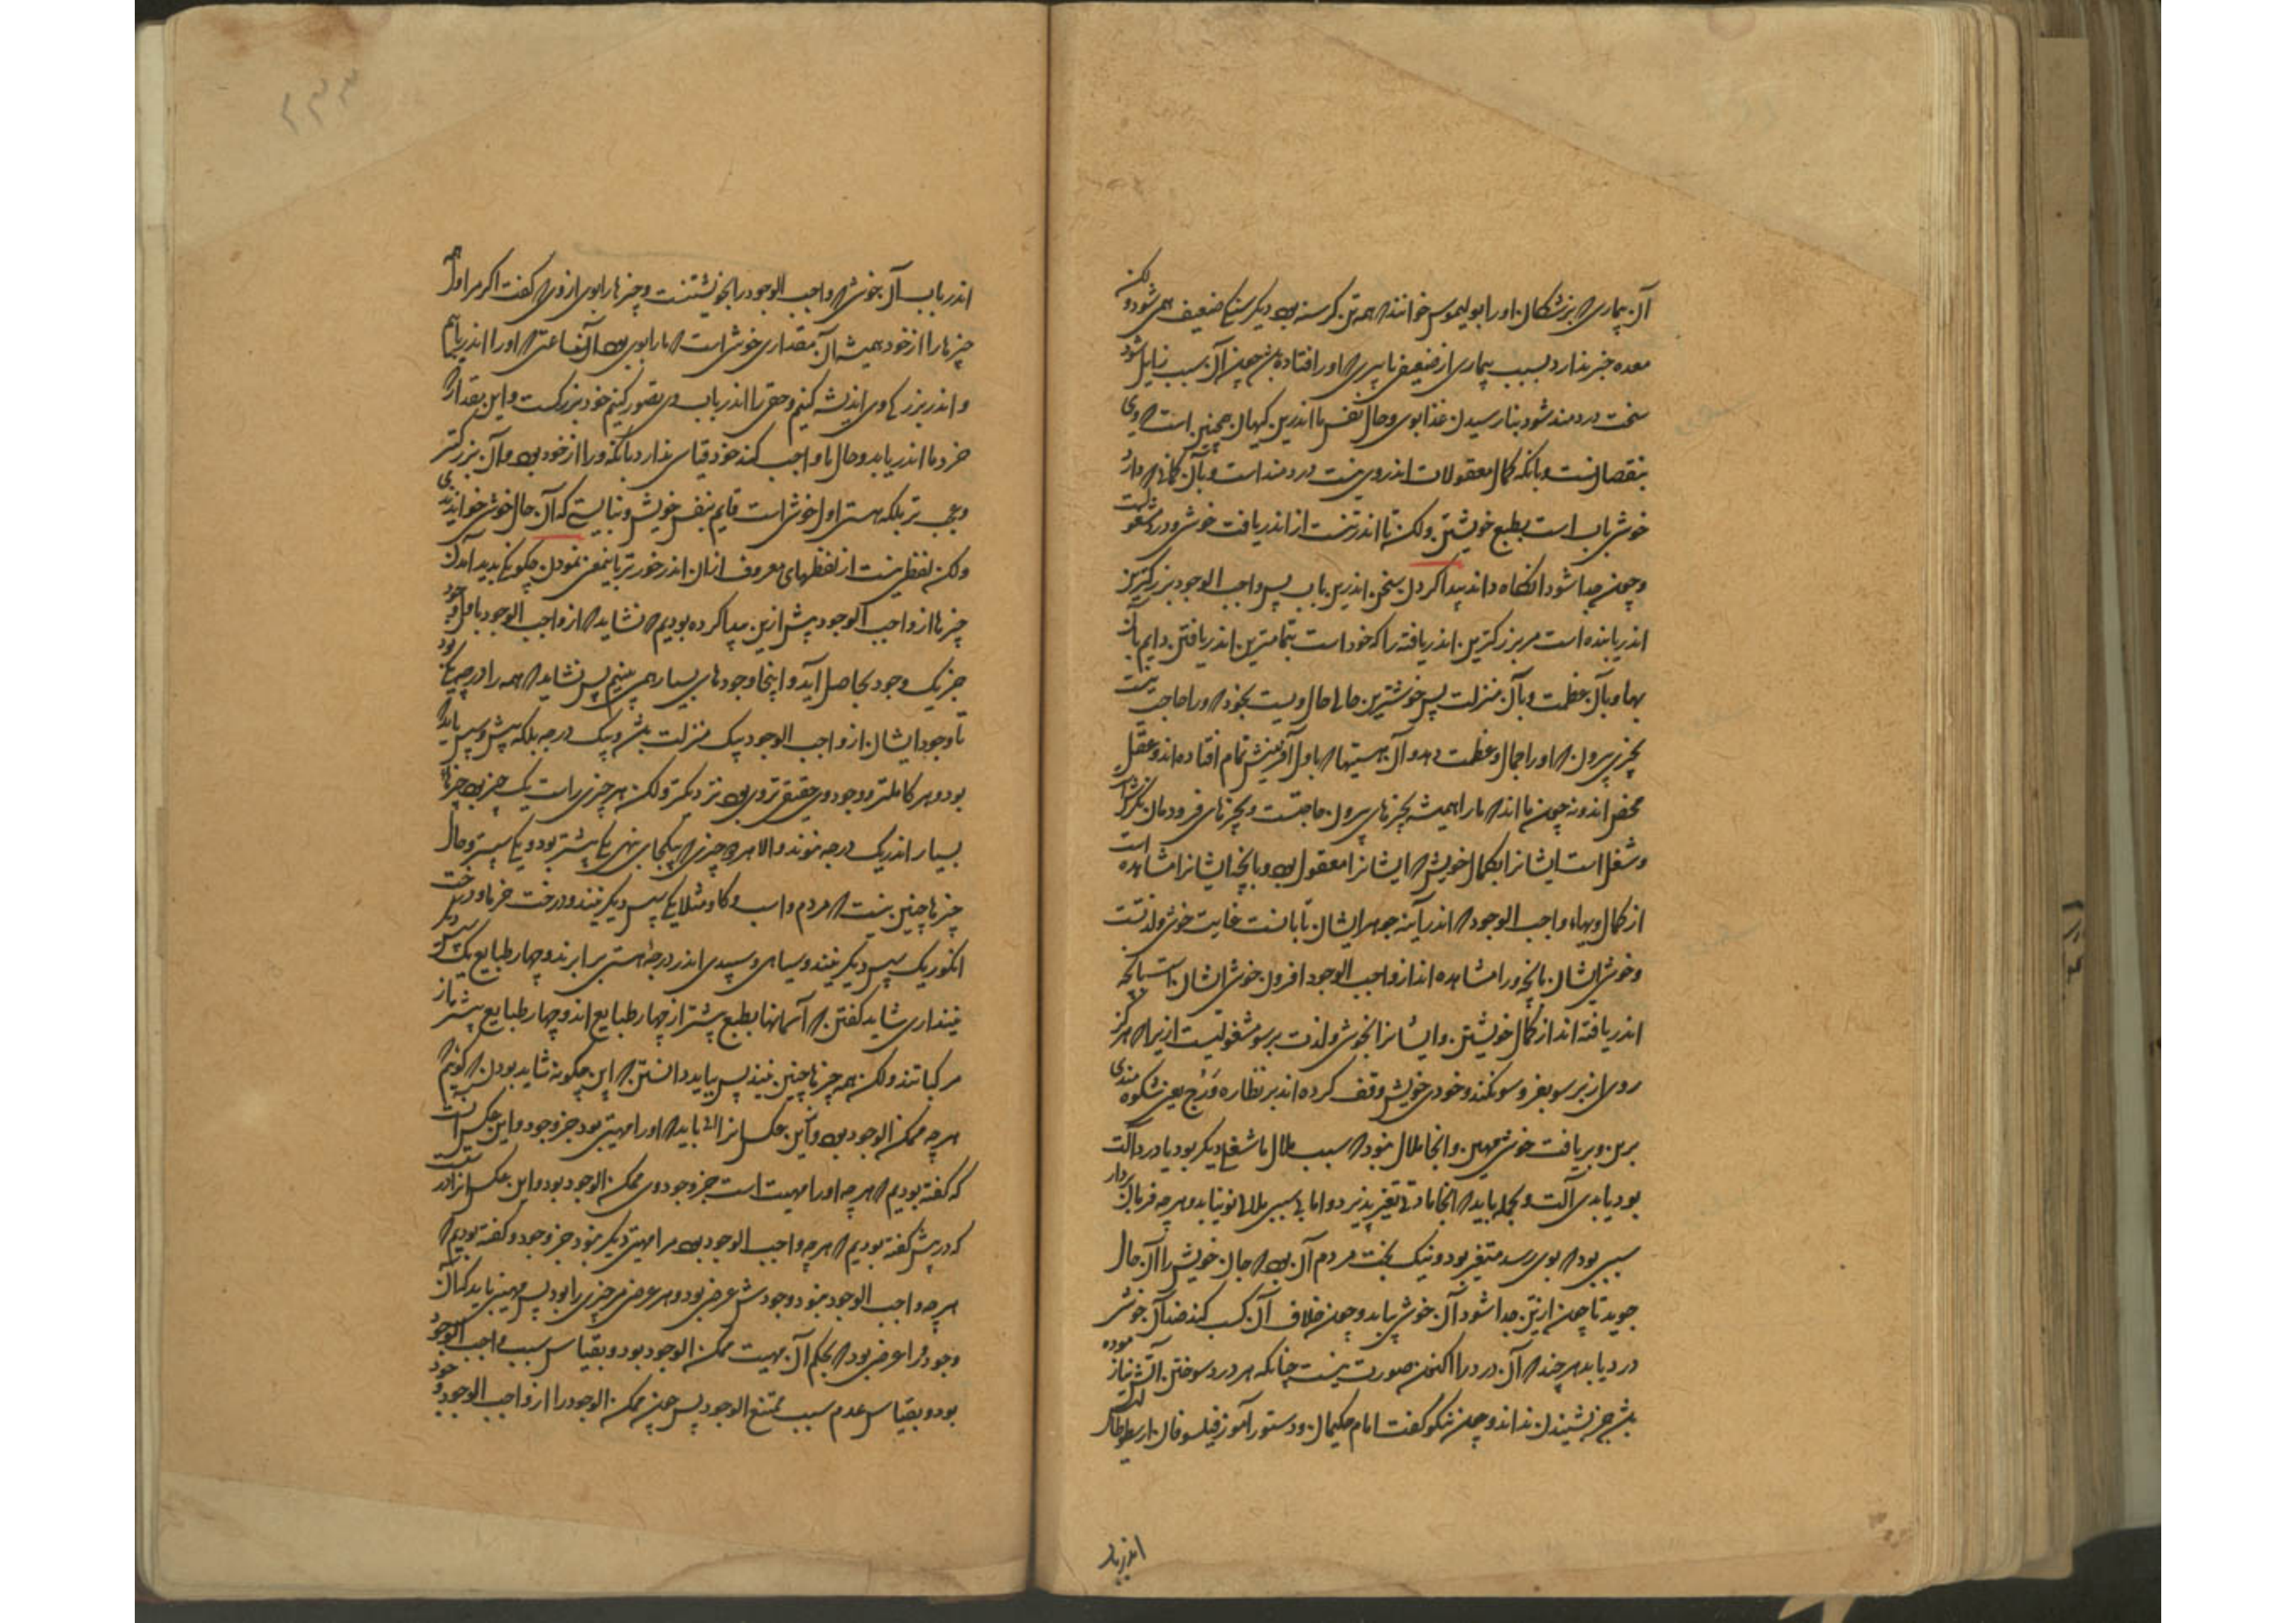 آن بیماری که بزشکان او را بولیموس خوانند که همه تن کرسنه بود و یکن سخت ضعیف همی شود ولکن
معده خبر ندارد بسبب بیماری از ضعیفی یا سری که اورا افتاده بود چون آن سبب زایل شود
سخت دردمند شود بنارسیدن غذا بوی و حال نفس ما اندرین کیهان همچنین است که وی
بنقصانست و بانکه کمال معقولات اندر وی نیست دردمند است و بآن کمالی که دارد
خوش یاب است بطبع خویشتن ولکن تا اندر تنست از اندریافت خوشی و درد مشغولست
و چون جدا شود انکاه داند پیدا کردن سخن اندرین باب پس واجب الوجود بزرکترین
اندریابنده است مر بزرکترین اندریافته را که خود است بتمامترین اندریافتن دایم بآن
بها و بآن عظمت و بآن منزلت پس خوشترین حالی حال ویست بخود که ورا حاجت نیست
بچیزی بیرون که اورا جمال و عظمت دهد و آن هستیها که باول آفرینش تمام افتاده اند و عقل
محض اند و نه چون ما اند که ما را همیشه بچیزهای بیرون حاجتست و بچیزهای فرودمان نکرش
و شغل است ایشانرا بکمال خویش که ایشانرا معقول بود و بانچه ایشانرا مشاهده است
از کمال و بهاء واجب الوجود که اندر آینه جوهر ایشان تابانست غایت خوشی و لذتست
و خوشی ایشان بانچه ورا مشاهده اند از واجب الوجود افزون خوشی ایشان است بانچه
اندر یافته اند از کمال خویشتن و ایشانرا بخوشی و لذت برسو مشغولیست ازیرا که هرکز
روی از برسو بفروسو نکنند و خودی خویش وقف کرده اند بر نظاره ورج یعنی شکوه مندی
برین و بریافت خوشی مهین و انجا ملال نبود که سبب ملال ما شغلی دیکر بود یا درد آلت
بود یا بدی آلت و بجمله باید که انجا مادتی تغیر پذیرد و اما بی سببی ملالی نو نیاید و هر چه فرمان بردار
سببی بود که بوی رسد متغیر بود و نیک بخت مردم آن بود که جان خویش را آن حال
جوید تا چون از تن جدا شود آن خوشی یابد و چون خلاف آن کسب کند ضد آن خوشی
درد یابد هر چند که آن درد را اکنون صورت نیست چنانکه هر درد سوختن آتش نیازموده
بود جز بشنیدن نداند و چون نیکو کفت امام حکیمان و دستور و آموزکار فیلسوفان ارسطاطالیس
اندر باب
اندر باب آن خوشی که واجب الوجود را بخویشتنست و چیزها را بوی از وی که کفت اکر مر اول همه
چیزها را از خود همیشه آن مقداری خوشی است که ما را بوی بود آن ساعتی که اورا اندر یابیم
و اندر بزرکی وی اندیشه کنیم و حقی را اندر باب وی تصور کنیم خود بزرکست و این مقدار که
خرد ما اندر یابد و حال ما واجب کند خود قیاس ندارد بانکه ورا از خود بود و آن بزرکتر
و عجب تر بلکه هستی اول خوشی است قایم بنفس خویش و نبایستی که آن حال خوشی خوانندی
ولکن لفظی نیست از لفظهای معروف از آن اندر خورتر باین معنی نمودن چکونکی پدید آمدن
چیزها از واجب الوجود پیش ازین پیدا کرده بودیم که نشاید که از واجب الوجود باول وجود
جز یک وجود بحاصل آید و اینجا وجودهای بسیار همی بینیم پس نشاید که همه را درجه یکی بود
تا وجود ایشان از واجب الوجود بیک منزلت بود و بیک درجه بلکه پیش و پس باید که
بود و هر کاملتر و وجود وی حقیقی تر وی بود نزدیکتر ولکن هر چیزی راست یک چیز بود چیزهاء
بسیار اندر یک درجه نبوند و الا هر دو چیزی که بیکجای نهی یکی پیشتر بود و یکی سپستر و حال
چیزها چنین نیست که مردم و اسب و کاو مثلا یکی سپس دیکر نیند و درخت خرما و درخت
انکور یک سپس دیکر نیند و سیاهی و سپیدی اندر درجه هستی برابرند و چهار طبایع یک سپس دیکر
نیند آری شاید کفتن که آسمانها بطبع پیشتر از چهار طبایع اند و چهار طبایع پیشتر از
مرکباتند ولکن همه چیزها چنین نیند پس بباید دانستن که این چکونه شاید بودن که کوئیم که
هر چه ممکن الوجود بود و این عکس انرا البته باید که اورا مهیتی بود جز وجود و این عکس آنست
که کفته بودیم که هر چه اورا مهیت است جز وجود وی ممکن الوجود بود و این عکس انرا درست
که در پیش کفته بودیم که هر چه واجب الوجود بود مر اورا مهیتی دیکر نبود جز وجود و کفته بودیم که
هر چه واجب الوجود نبود وجودش عرضی بود و هر عرضی مر چیزی را بود پس مهیتی باید که آن
وجود ورا عرضی بود که بحکم آن مهیت ممکن الوجود بود و بقیاس سبب واجب الوجود
بود و بقیاس عدم سبب ممتنع الوجود پس چون ممکن الوجود را از واجب الوجود وجود